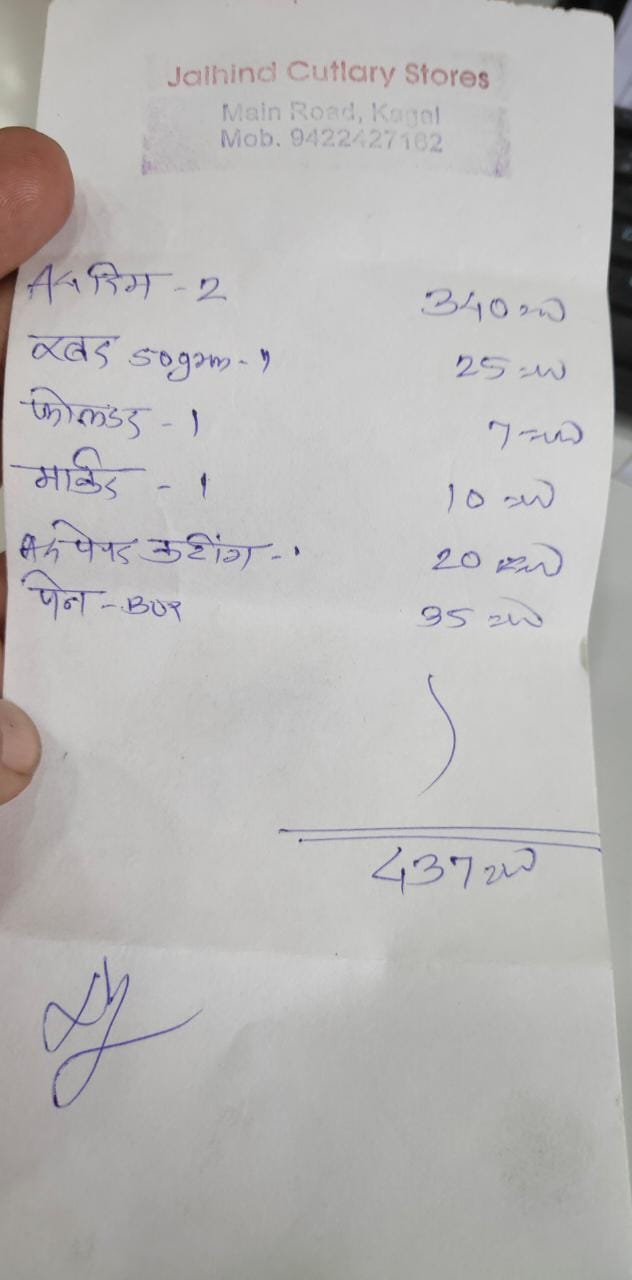 Jaihind Cutlary Stores
Main Road, Kagal
Mob. 9422427162
A4 रिम - 2 340=00
रबर 50gram - 1 25=00
फोल्डर - 1 7=00
मार्कर - 1 10=00
A4 पेपर कटींग - 1 20=00
पेन - Box 35=00
437=00